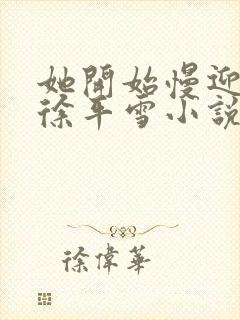 她開始慢迎
徐平雪小說
徐偉華